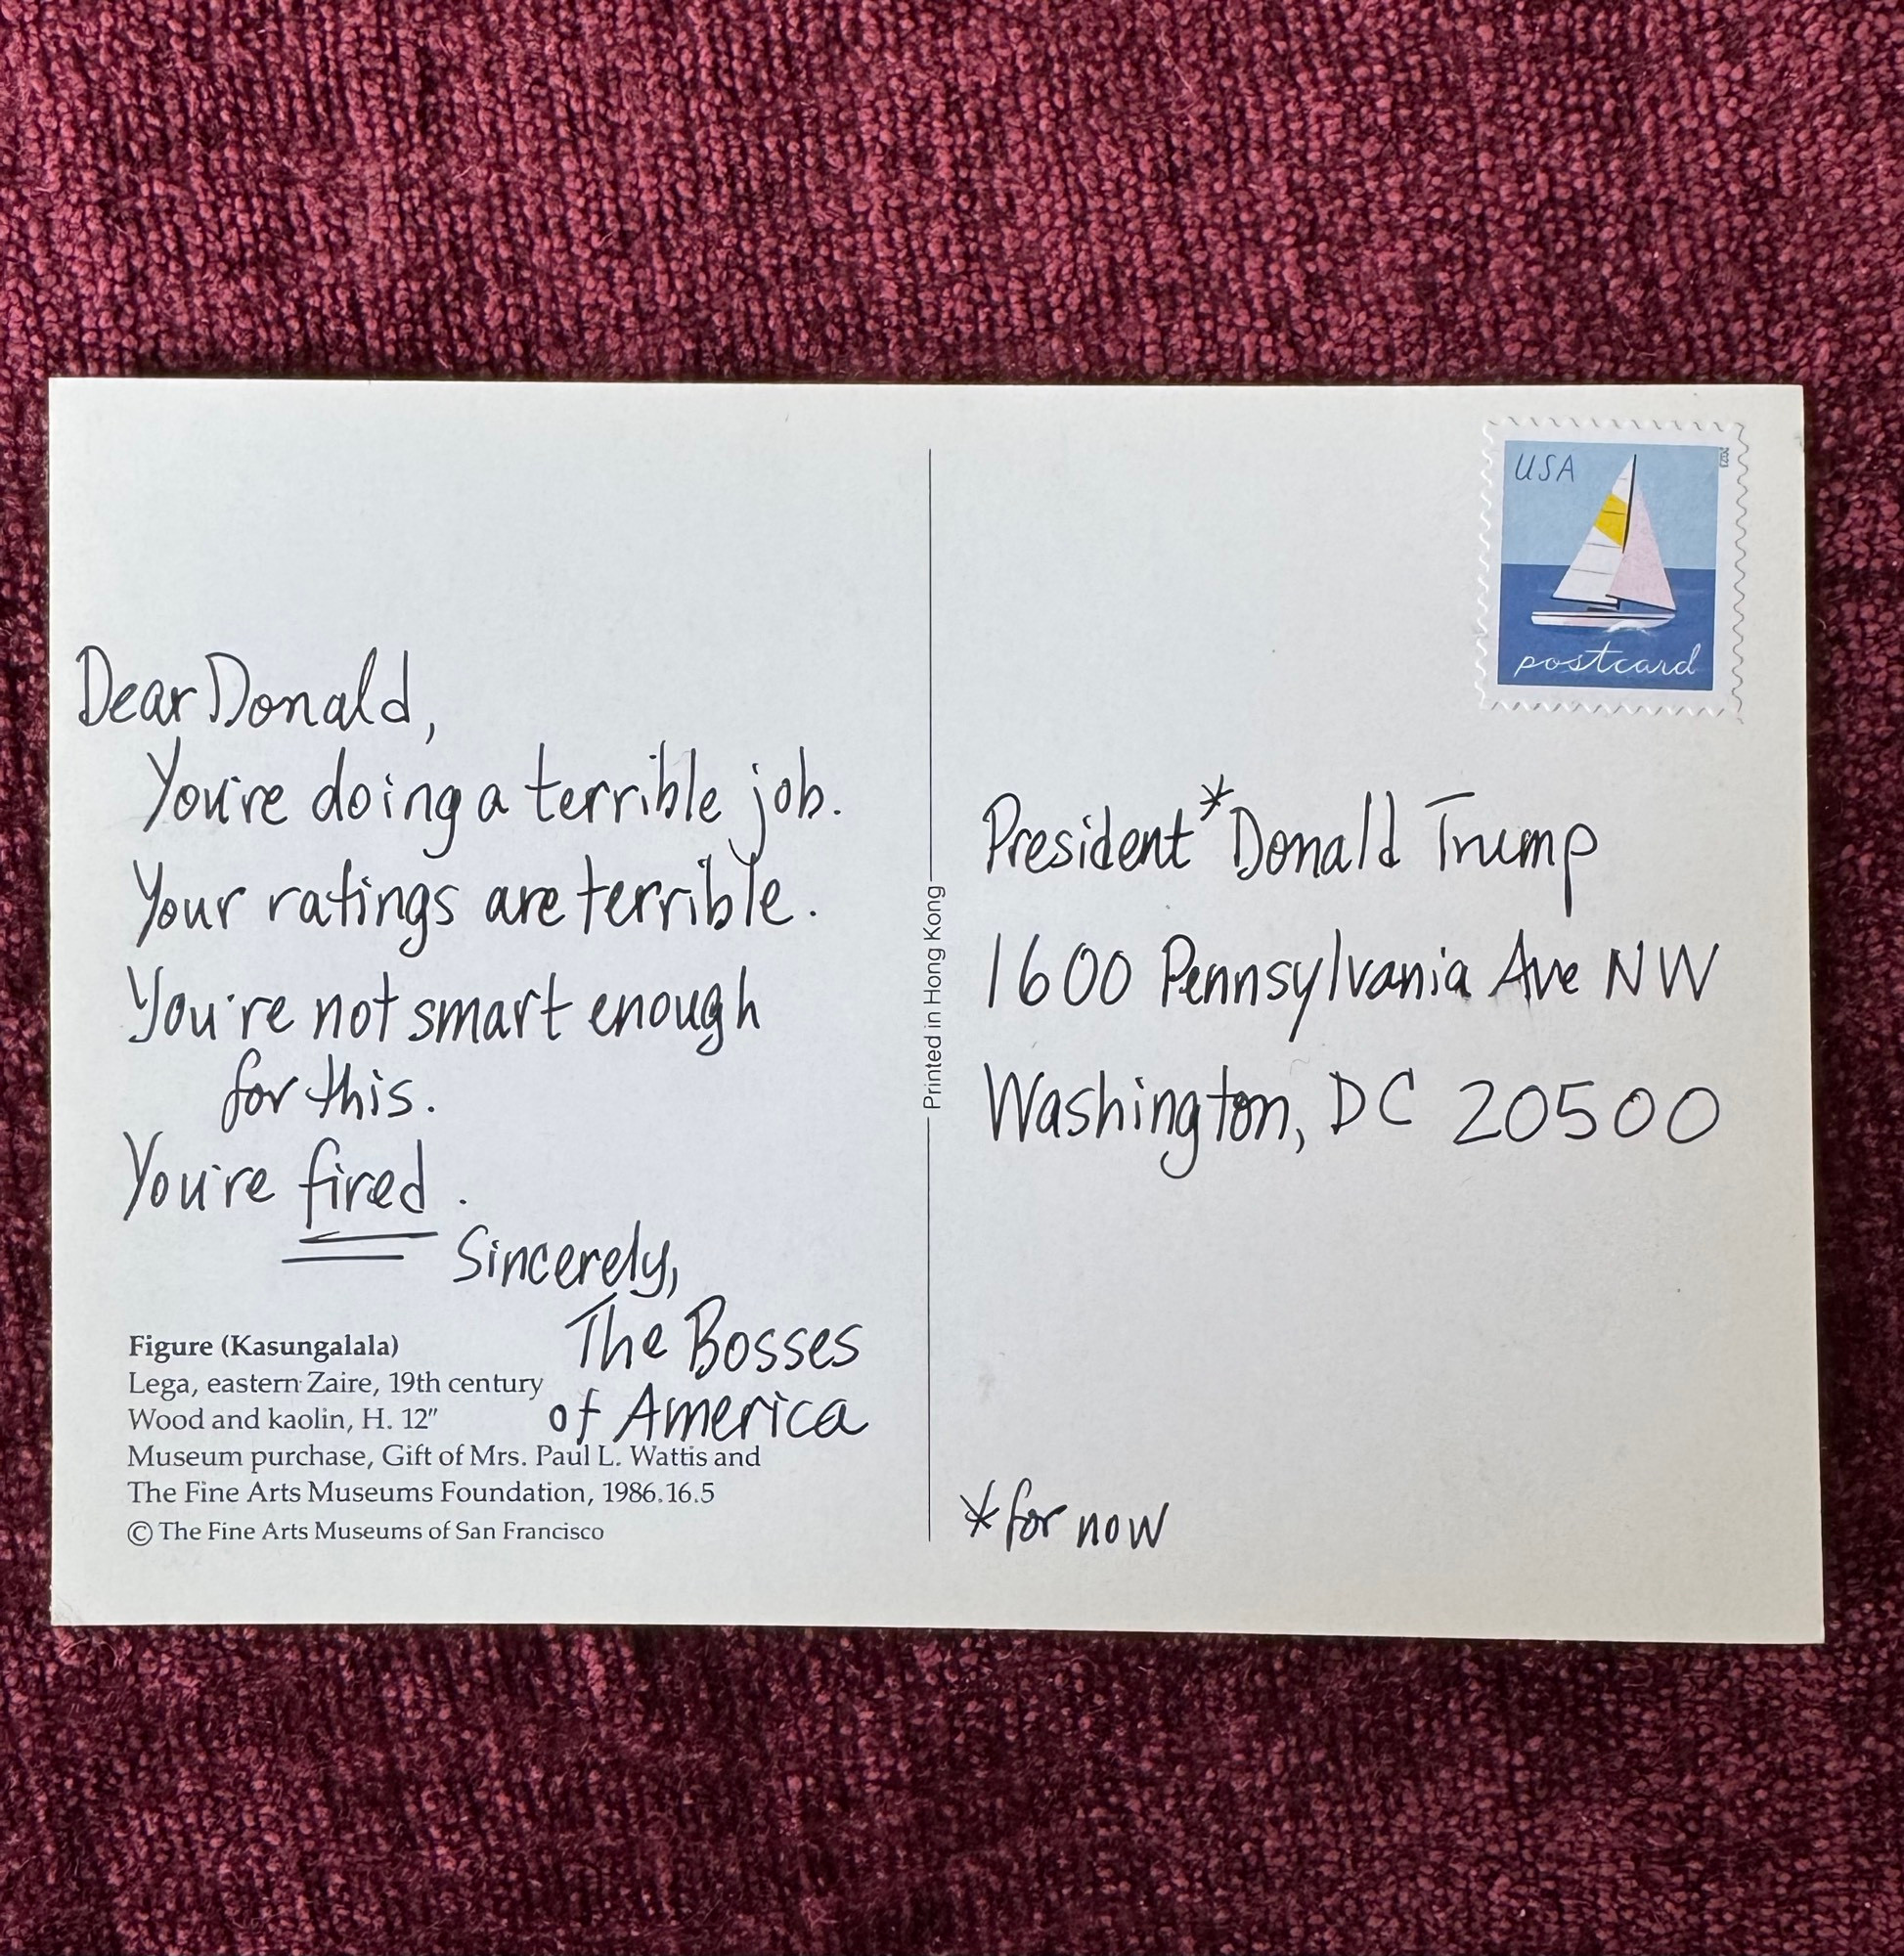 Dear Donald,
You're doing a terrible job.
Your ratings are terrible.
You're not smart enough
for this.
You're fired.
Sincerely,
The Bosses
of America
Figure (Kasungalala)
Lega, eastern Zaire, 19th century
Wood and kaolin, H. 12"
Museum purchase, Gift of Mrs. Paul L. Wattis and
The Fine Arts Museums Foundation, 1986.16.5
© The Fine Arts Museums of San Francisco
Printed in Hong Kong
USA
2023
postcard
President* Donald Trump
1600 Pennsylvania Ave NW
Washington, DC 20500
*for now